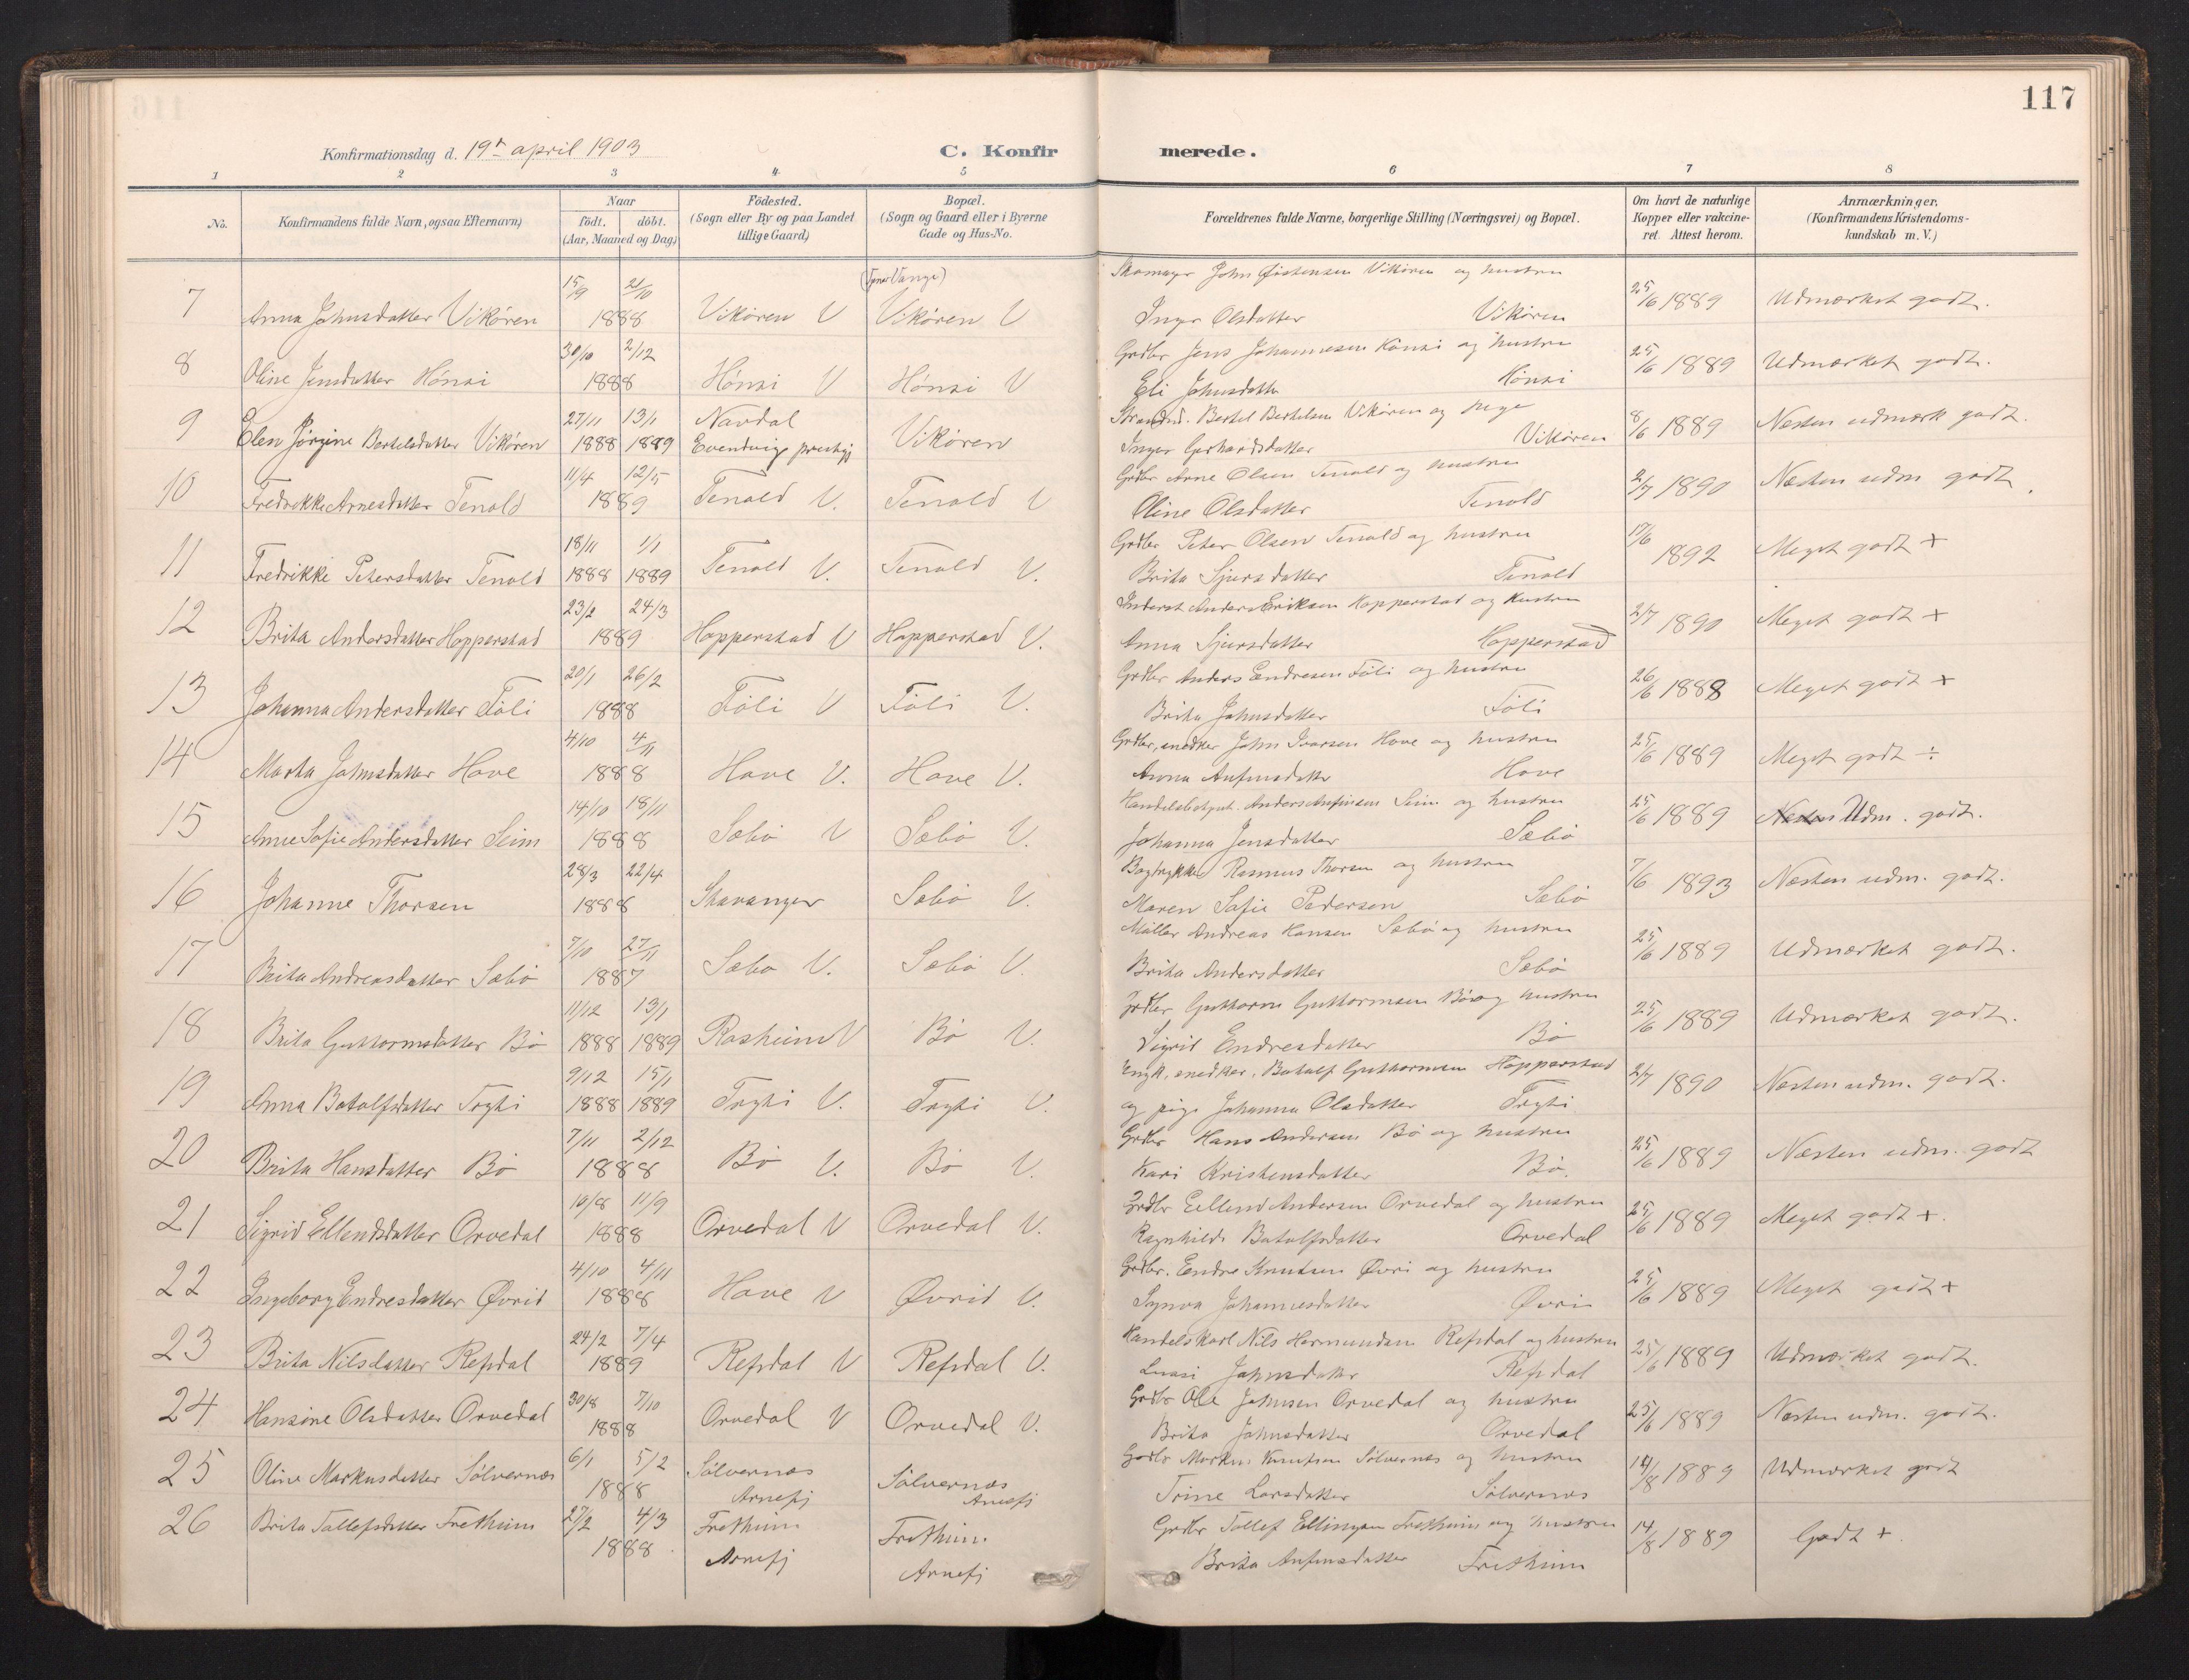 117
Konfirmationsdag d. 19de april 1903
C. Konfirmerede.
1 2 3 4 5 6 7 8
No.
Konfirmandens fulde Navn, ogsaa Efternavn)
Naar
födt. döbt.
(Aar, Maaned og Dag)
Födested.
(Sogn eller By og paa Landet
tillige Gaard)
Bopæl.
(Sogn og Gaard eller i Byerne
Gade og Hus-No.
Forældrenes fulde Navne, borgerlige Stilling (Næringsvei) og Bopæl.
Om havt de naturlige
Kopper eller vakcine-
ret. Attest herom.
Anmærkninger.
(Konfirmandens Kristendoms-
kundskab m. V.)
15/9 21/10 Skomager John Øistensen Vikören og hustru
7 Anna Johnsdatter Vikören 1888 Vikören V Vikören V Inger Olsdatter Vikören 25/6 1889 Udmærket godt.
30/10 2/12 Grdbr Jens Johannesen Hönsi og hustru
8 Oline Jensdatter Hönsi 1888 Hönsi V Hönsi V Eli Johnsdatter Hönsi 25/6 1889 Udmærket godt.
27/11 13/1 Navdal Strandsid. Bertel Bertelsen Vikören og
9 Elen Jörgine Bertelsdatter Vikören 1888 1889 Evendvig prestegj Vikören Inger Gerhardsdatter Vikören 8/6 1889 Næsten udmærk godt.
11/4 12/5 Grdbr Arne Olsen Tenold og hustru
10 Fredrikke Arnesdatter Tenold 1889 Tenold V. Tenold V Oline Olsdatter Tenold 2/7 1890 Næsten udm godt.
18/11 1/1 Grdbr Peter Olsen Tenold og hustru
11 Fredrikke Petersdatter Tenold 1888 1889 Tenold V. Tenold V. Brita Sjursdatter Tenold 17/6 1892 Meget godt +
23/2 24/3 Inderst Anders Eriksen Hopperstad og hustru
12 Brita Andersdatter Hopperstad 1889 Hopperstad V Hopperstad V. Anna Sjursdatter Hopperstad 2/7 1890 Meget godt +
20/1 26/2 Grdbr Anders Endresen Föli og hustru
13 Johanna Andersdatter Föli 1888 Föli V Föli V. Brita Johnsdatter Föli 26/6 1888 Meget godt +
4/10 4/11 Grdbr, snedker John Ivarsen Hove og hustru
14 Marta Johnsdatter Hove 1888 Hove V. Hove V. Anna Anfinsdatter Hove 25/6 1889 Meget godt ÷
14/10 18/11 Handelsbetjent. Anders Anfinsen Seim og hustru
15 Anne Sofie Andersdatter Seim 1888 Sæbö V Sæbö V. Johanna Jensdatter Sæbö 25/6 1889 Næsten Udm. godt.
28/3 22/4 Bogtrykker Rasmus Thorsen og hustru
16 Johanne Thorsen 1888 Stavanger Sæbö V. Maren Sofie Pedersen Sæbö 7/6 1893 Næsten udm. godt.
7/10 27/11 Möller Andreas Hansen Sæbö og hustru
17 Brita Andreasdatter Sæbö 1887 Sæbö V. Sæbö V. Brita Andersdatter Sæbö 25/6 1889 Udmærket godt.
11/12 13/1 Grdbr Guttorm Guttormsen Bö og hustru
18 Brita Guttormsdatter Bö 1888 1889 Rasheim V Bö V. Sigrid Endresdatter Bö 25/6 1889 Udmærket godt.
9/12 15/1 Ungk. snedker. Botolf Guttormsen Hopperstad
19 Anna Botolfsdatter Tryti 1888 1889 Tryti V. Tryti V. og pige Johanna Olsdatter Tryti 2/7 1890 Næsten udm. godt.
7/11 2/12 Grdbr Hans Andersen Bö og hustru
20 Brita Hansdatter Bö 1888 Bö V. Bö V. Kari Kristensdatter Bö. 25/6 1889 Næsten udm. godt
10/8 11/9 Grdbr Ellend Andersen Orvedal og hustru
21 Sigrid Ellendsdatter Orvedal 1888 Orvedal V Orvedal V. Ragnhild Botolfsdatter Orvedal 25/6 1889 Meget godt +.
4/10 4/11 Grdbr. Endre Knutsen Øvri og hustru
22 Ingeborg Endresdatter Øvrid 1888 Hove V Øvrid V. Synva Johannesdatter Øvri 25/6 1889 Meget godt +
24/2 7/4 Handelskarl Nils Hermundsen Refsdal og hustru
23 Brita Nilsdatter Refsdal 1889 Refsdal V Refsdal V. Johnsdatter Refsdal 25/6 1889 Udmærket godt.
30/8 7/10 Grdbr Ole Johnsen Orvedal og hustru
24 Hansine Olsdatter Orvedal 1888 Orvedal V Orvedal V. Brita Johnsdatter Orvedal 25/6 1889 Næsten udm. godt.
6/1 5/2 Sölvernæs Grdbr Markus Knutsen Sölvernæs og hustru
25 Oline Markusdatter Sölvernæs 1888 Arnefj Sölvernæs Arnefj Trine Larsdatter Sölvernæs 14/8 1889 Udmærket godt
27/2 4/3 Fretheim Grdbr Tollef Ellingsen Fretheim og hustru
26 Brita Tollefsdatter Fretheim 1888. Arnefj Fretheim Arnefj Brita Anfinsdatter Fretheim 14/8 1889 Godt +.